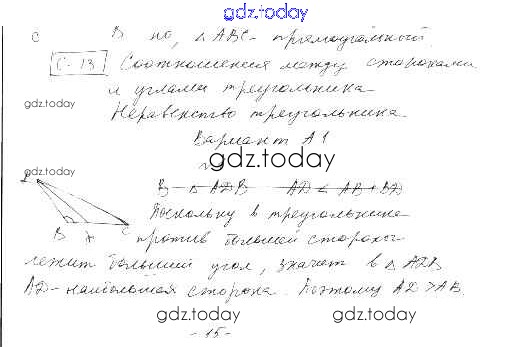 gdz.today
В но, △ ABC - прямоугольный.
С-13 Соотношения между сторонами
и углами треугольника
gdz.today
Неравенство треугольника
Вариант А1
gdz.today
gdz.today
В △ ADB AD < AB + BD
Поскольку в треугольнике
B A C против большей стороны
лежит больший угол, значит в △ ADB
AD - наибольшая сторона. Поэтому AD > AB.
gdz.today gdz.today
- 15 -